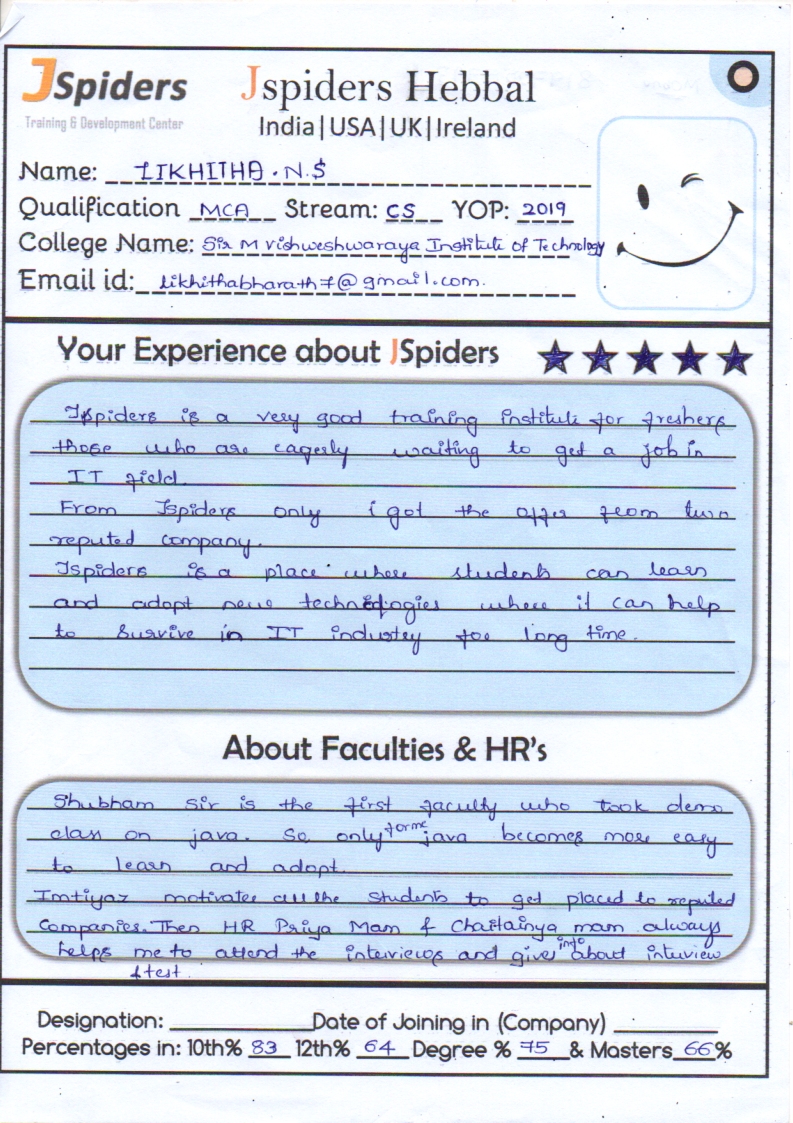 JSpiders
Training & Development Center
Jspiders Hebbal
India|USA|UK|Ireland
Name: LIKHITHA.N.S
Qualification MCA Stream: CS YOP: 2019
College Name: Sir M Vishweshwaraya Institute of Technology
Email id: likhithabharath7@gmail.com.
Your Experience about JSpiders
Jspiders is a very good training institute for freshers
those who are eagerly waiting to get a job in
IT field.
From Jspiders only i got the offer from two
reputed company.
Jspiders is a place where students can learn
and adopt new technologies where it can help
to survive in IT industry for long time.
About Faculties & HR's
Shubham Sir is the first faculty who took demo
class on java. So only for me java becomes more easy
to learn and adopt.
Imtiyaz motivates all the students to get placed to reputed
companies. Then HR Priya Mam & Chaitainya mam always
helps me to attend the interviews and gives info about interview
& test.
Designation: Date of Joining in (Company)
Percentages in: 10th% 83 12th% 64 Degree % 75 & Masters 66%